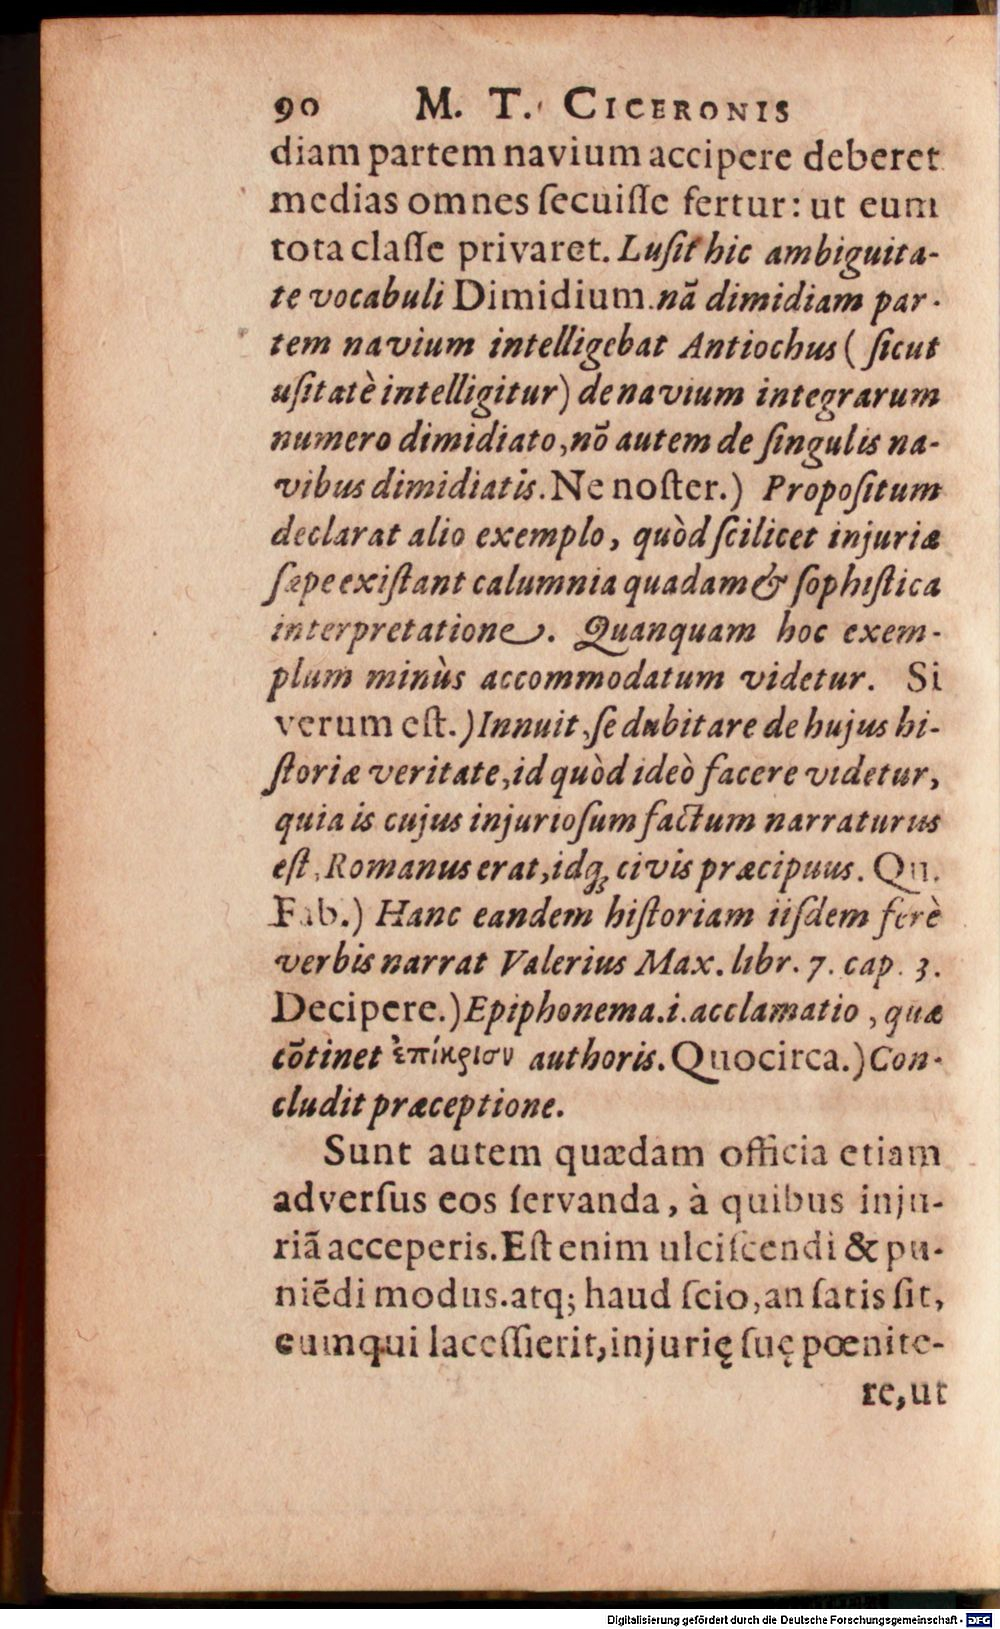 90 M. T. CICERONIS
diam partem navium accipere deberet
medias omnes ſecuiſſe fertur: ut eum
tota claſſe privaret. Luſit hic ambiguita-
te vocabuli Dimidium. nã dimidiam par-
tem navium intelligebat Antiochus ( ſicut
uſitatè intelligitur) de navium integrarum
numero dimidiato, nõ autem de ſingulis na-
vibus dimidiatis. Ne noſter.) Propoſitum
declarat alio exemplo, quòd ſcilicet injuriæ
ſæpe exiſtant calumnia quadam & ſophiſtica
interpretatione. Quanquam hoc exem-
plum minùs accommodatum videtur. Si
verum eſt.) Innuit, ſe dubitare de hujus hi-
ſtoriæ veritate, id quòd ideò facere videtur,
quia is cujus injurioſum factum narraturus
eſt, Romanus erat, idq; civis præcipuus. Qu.
Fab.) Hanc eandem hiſtoriam iiſdem ferè
verbis narrat Valerius Max. libr. 7. cap. 3.
Decipere.) Epiphonema.i.acclamatio, quæ
cõtinet ἐπίκρισιν authoris. Quocirca.) Con-
cludit præceptione.
Sunt autem quædam officia etiam
adverſus eos ſervanda, à quibus inju-
riã acceperis. Eſt enim ulciſcendi & pu-
niẽdi modus. atq; haud ſcio, an ſatis ſit,
eum qui laceſſierit, injurię ſuę pœnite-
re, ut
Digitalisierung gefördert durch die Deutsche Forschungsgemeinschaft - DFG